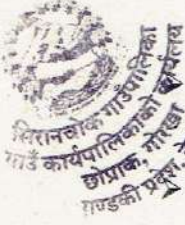 सिरानचोक गाउँपालिका
गाउँ कार्यपालिकाको कार्यलय
छोप्राक, गोरखा
गण्डकी प्रदेश,